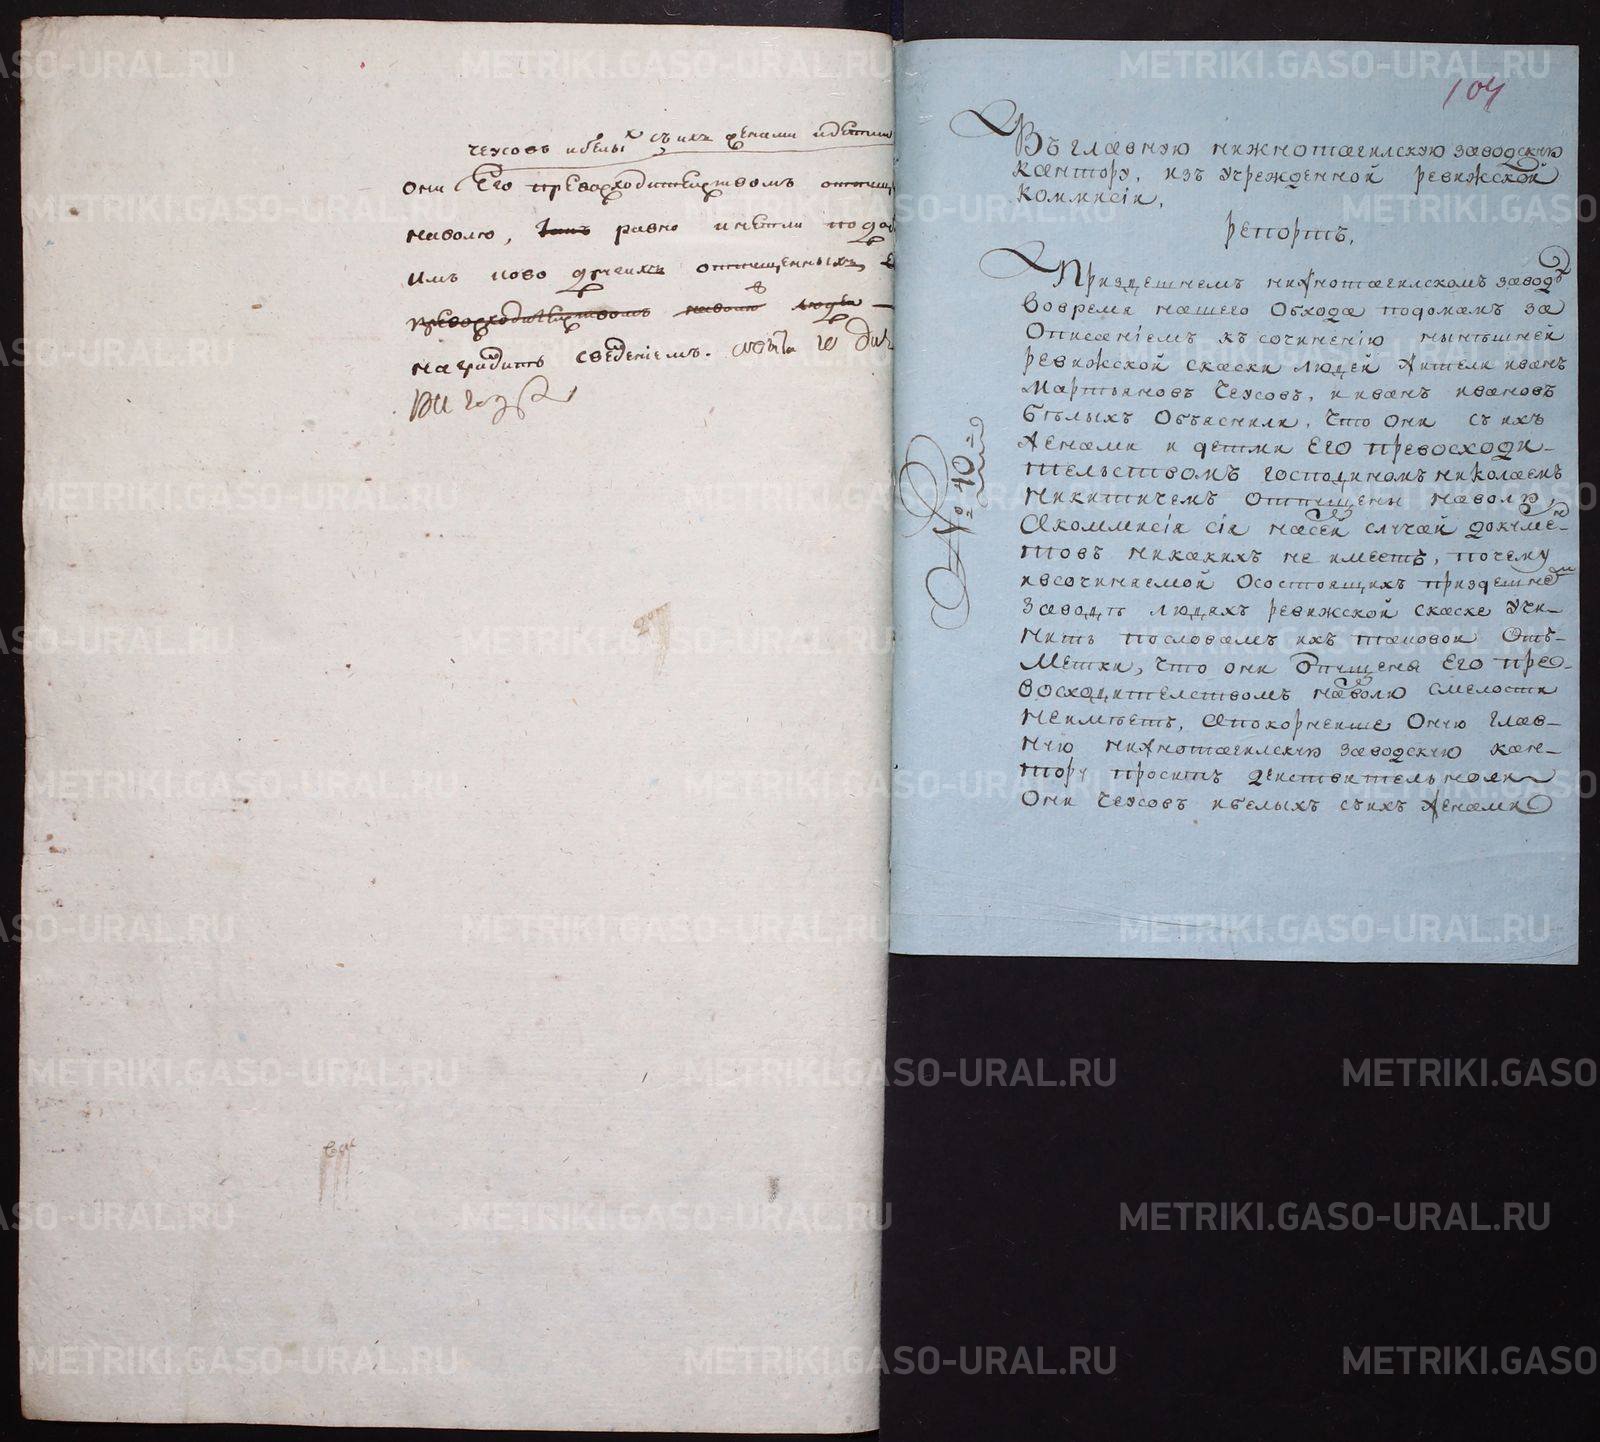 чеусовъ ибелыхъ съ ихъ женами идетми
они Его превосходительствомъ
наволю, равно иметли
имъ ново другихъ отпущенныхъ,
превосходительствомъ наволю люди
наградить сведениемъ.
104
Въ главную нижнотагилскую заводскую
кантору, изъ учрежденной ревижской
коммисіи,
репортъ,
Приздешнемъ нижнотагилскомъ заводѣ
вовремя нашего обхода подомамъ за
описаніемъ къ сочинению нынѣшней
ревижской скаски людей жители иванъ
Мартьяновъ Чеусовъ, и иванъ ивановъ
бѣлыхъ объяснили, что они съ ихъ
женами и детми Его превосходи-
тельствомъ господиномъ николаемъ
никитичемъ отпущены наволю,
акоммисія сія насей случай докуме-
нтовъ никакихъ не имеетъ, почему
ивсочиняемой осостоящихъ приздешнемъ
заводѣ людяхъ ревижской скаске учи-
нить пословамъ ихъ таковой отъ-
метки, что они отпущены Его пре-
восходителствомъ наволю смелости
неимѣетъ, апокорнеише оную глав-
ную нижнотагилскую заводскую кан-
тору проситъ действительноли
они Чеусовъ ибелыхъ съихъ женами
№ 40
METRIKI.GASO-URAL.RU